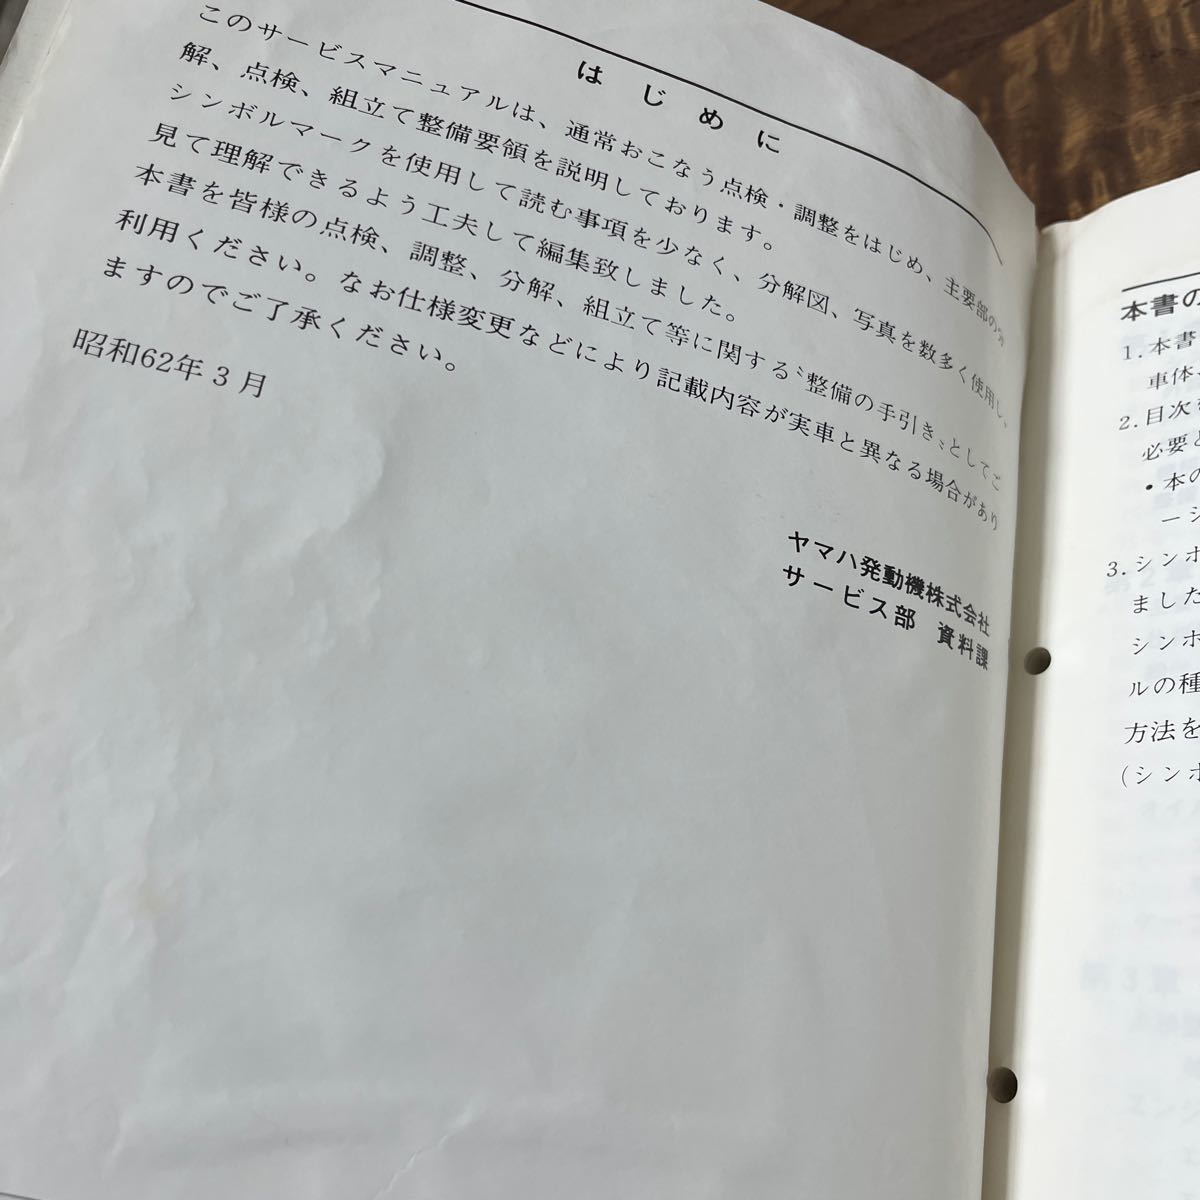 はじめに
このサービスマニュアルは、通常おこなう点検・調整をはじめ、主要部の分
解、点検、組立て整備要領を説明しております。
シンボルマークを使用して読む事項を少なく、分解図、写真を数多く使用し、
見て理解できるよう工夫して編集致しました。
本書を皆様の点検、調整、分解、組立て等に関する〝整備の手引き〟としてご
利用ください。なお仕様変更などにより記載内容が実車と異なる場合があり
ますのでご了承ください。
昭和62年3月
ヤマハ発動機株式会社
サービス部 資料課
本書の
1.本書
車体、
2.目次
必要と
・本の
ージ
3.シンボ
ました
シンボ
ルの種
方法を
(シンボ